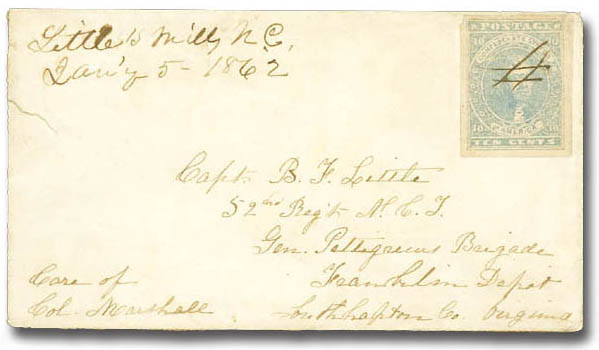 Little's Mills, N.C.
Jan'y 5 - 1862
POSTAGE
CONFEDERATE STATES
OF AMERICA
10 10
10 10
TEN CENTS
Capt. B. F. Little
52nd Regt. N. C. T.
Gen. Pettigrews Brigade
Franklin Depot
Southhapton Co. Virginia
Care of
Col. Marshall